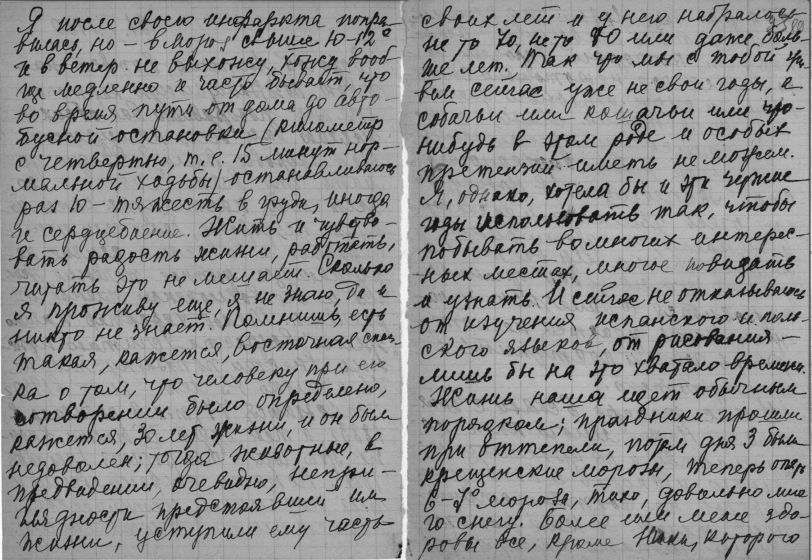 Я после своего инфаркта попра-
вилась, но – в мороз свыше 10-12°
и в ветер не выхожу, хожу вооб-
ще медленно и часто бывает, что
во время пути от дома до авто-
бусной остановки (километр
с четвертью, т.е. 15 минут нор-
мальной ходьбы) останавливаюсь
раз 10 – тяжесть в груди, иногда
и сердцебиение. Жить и чувство-
вать радость жизни, работать,
читать это не мешает. Сколько
я проживу еще, я не знаю, да и
никто не знает. Помнишь, есть
такая, кажется, восточная сказ-
ка о том, что человеку при его
сотворении было определено,
кажется, 30 лет жизни, и он был
недоволен; тогда животные, в
предвидении, очевидно, непри-
глядности предстоявшей им
жизни, уступили ему часть
своих лет и у него набралось
не то 70, не то 80 или даже боль-
ше лет. Так что мы с тобой жи-
вем сейчас уже не свои годы, а
собачьи или кошачьи или что-
нибудь в этом роде и особых
претензий иметь не можем.
Я, однако, хотела бы и эти чужие
годы использовать так, чтобы
побывать во многих интерес-
ных местах, многое повидать
и узнать. И сейчас не отказываюсь
от изучения испанского и поль-
ского языков, от рисования –
лишь бы на это хватало времени.
Жизнь наша идет обычным
порядком; праздники прошли
при оттепели, потом дня 3 были
крещенские морозы, теперь опять
6-7° мороза, тихо, довольно мно-
го снегу. Более или менее здо-
ровы все, кроме которого